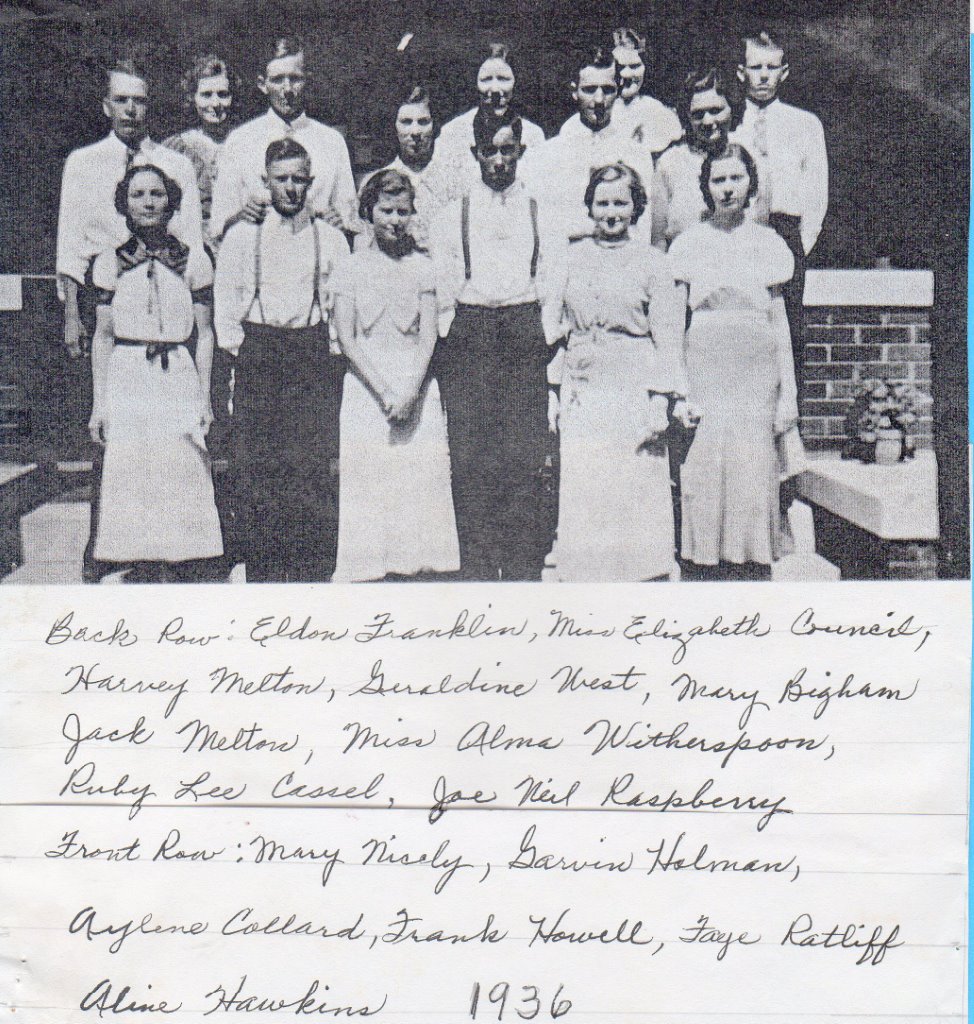 Back Row: Eldon Franklin, Miss Elizabeth Council,
Harvey Melton, Geraldine West, Mary Bigham
Jack Melton, Miss Alma Witherspoon,
Ruby Lee Cassel, Joe Neil Raspberry
Front Row: Mary Nicely, Garvin Holman,
Aylene Collard, Frank Howell, Faye Ratliff
Aline Hawkins 1936